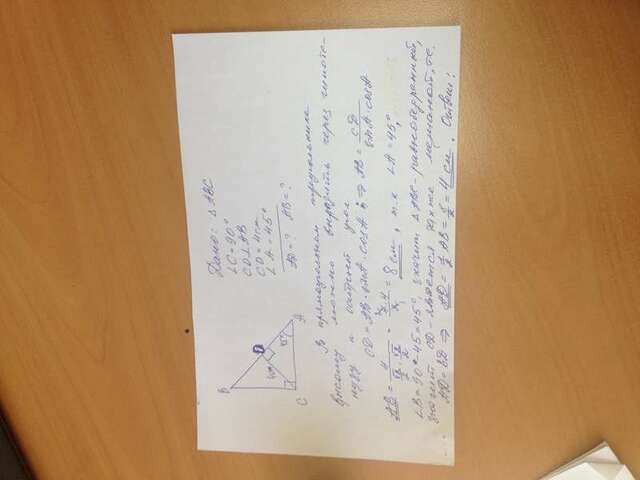 Дано: △ABC
∠C=90°
CD⊥AB
CD=4см
∠A=45°
AD=? AB=?
B
D
4см
45°
C
A
В прямоугольном треугольнике
высоту можно выразить через гипоте-
нузу и острый угол
CD=AB·sinA·cosA ⇒ AB = CD / sinA·cosA
AB = 4 / (√2/2 · √2/2) = 2·4 / 1 = 8 см, т.к ∠A=45°,
∠B=90°-45=45° значит △ABC-равнобедренный,
значит CD-является также медианой, т.е.
AD=BD ⇒ AD=½AB=8/2=4 см. Ответ: